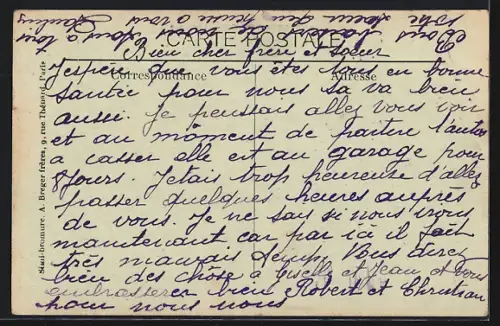 CARTE POSTALE
Correspondance
Adresse
Bien cher frère et soeur
J'espère que vous êtes tous en bonne
Santée pour nous sa va bien
aussi. Je penssais allez vous voir
et au môment de partire l'autos
a casser elle est au garage pour
8 jours. J'etais trop heureuse d'allez
passer quelques heures auprès
de vous. Je ne sais si nous irons
maintenant car par ici il fait
très mauvais temps. Vous direz
bien des chôse a Giselle et Jean et vous
embrasserer bien Robert et Christian
pour nous
Simi-bromure. A. Breger frères, 9, rue Thénard, Paris